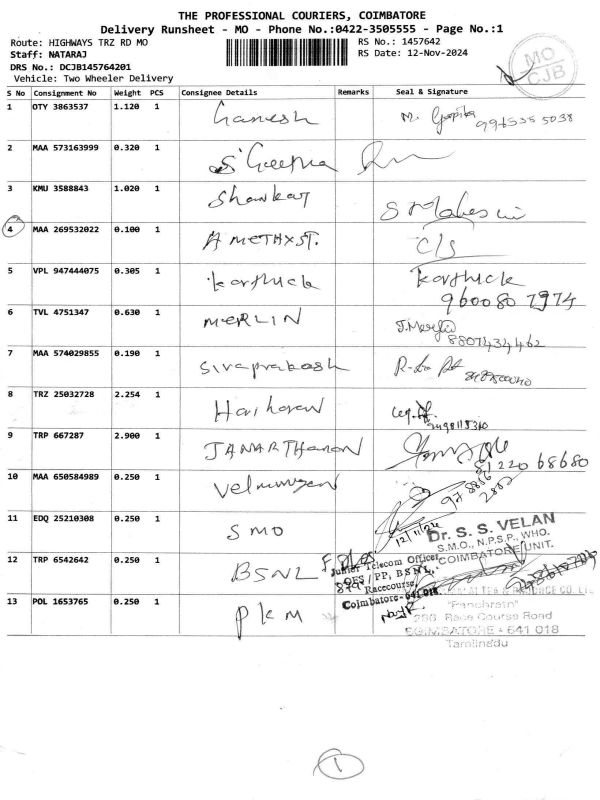 THE PROFESSIONAL COURIERS, COIMBATORE
Delivery Runsheet - MO - Phone No.:0422-3505555 - Page No.:1
Route: HIGHWAYS TRZ RD MO
RS No.: 1457642
Staff: NATARAJ
RS Date: 12-Nov-2024
DRS No.: DCJB145764201
Vehicle: Two Wheeler Delivery
MO
CJB
S No Consignment No Weight PCS Consignee Details Remarks Seal & Signature
1 OTY 3863537 1.120 1 Ganesh M. Gopika
2 MAA 573163999 0.320 1
3 KMU 3588843 1.020 1 Shankar
4 MAA 269532022 0.100 1 AMETHYST. C/S
5 VPL 947444075 0.305 1 Karthick Karthick
960080 7974
6 TVL 4751347 0.630 1 MERLIN
8807434462
7 MAA 574029855 0.190 1 Sivaprakash
8 TRZ 25032728 2.254 1 Hariharan
9 TRP 667287 2.900 1 JANARTHANAN
81220 68680
10 MAA 650584989 0.250 1 Velmurugan
11 EDQ 25210308 0.250 1 SMO 12/11/24
Dr. S. S. VELAN
S.M.O., N.P.S.P., WHO.
COIMBATORE UNIT.
12 TRP 6542642 0.250 1 BSNL
Junior Telecom Officer
OFS / PP, BSNL,
Racecourse,
Coimbatore-641 018
13 POL 1653765 0.250 1 PKM
"Panchratn"
286, Race Course Road
COIMBATORE - 641 018
Tamilnadu
1